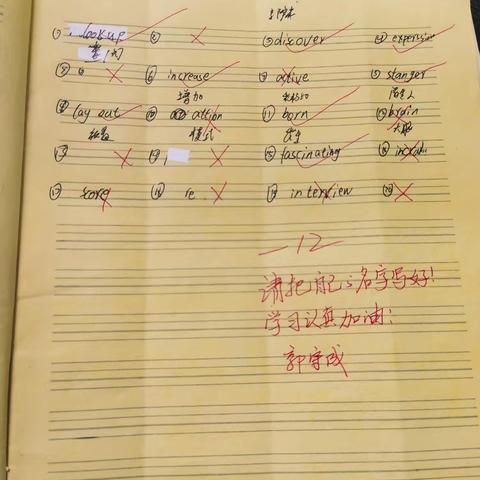 ① look up ② ③ discover ④ expensive
⑤ a ⑥ increase ⑦ active ⑧ stanger
增加 陌生人
⑨ lay out ⑩ ation ⑪ born ⑫ brain
出生 大脑
⑬ ⑭ ⑮ fascinating ⑯
⑰ ⑱ re ⑲ interview ⑳
-12
请把自己名字写好!
学习认真加油!
郭守成